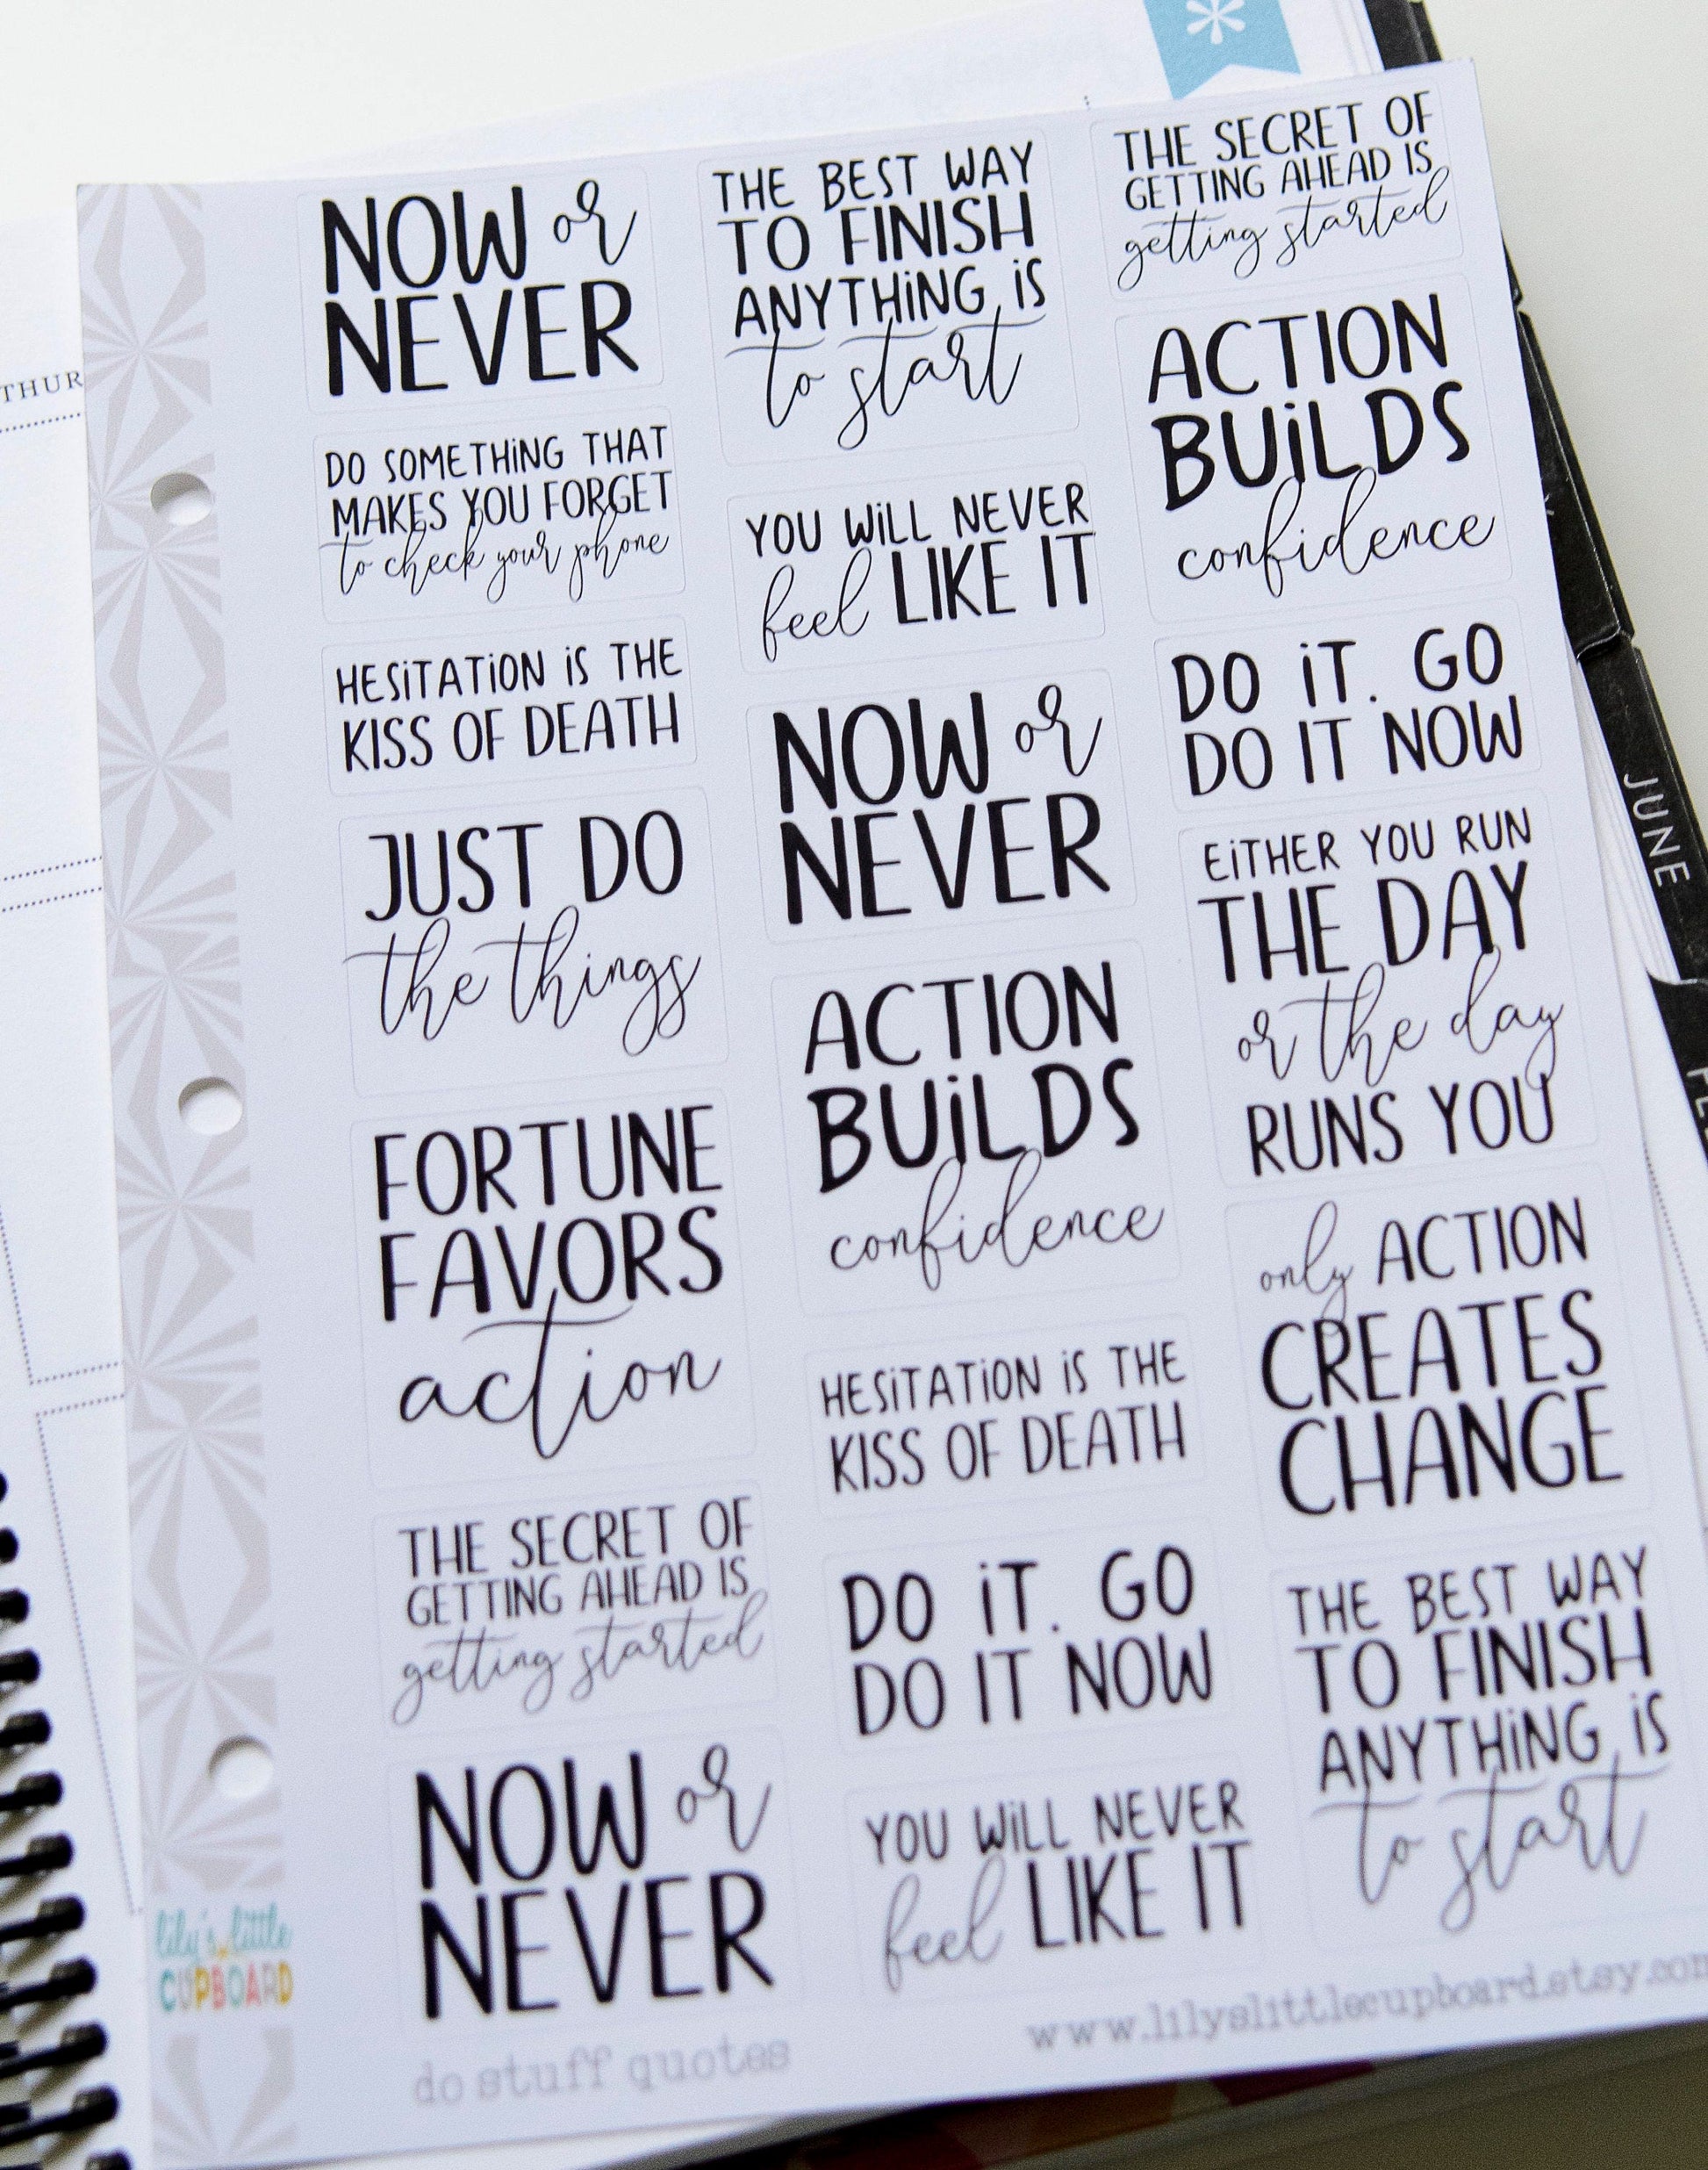 THUR
NOW or
NEVER
DO SOMETHING THAT
MAKES YOU FORGET
to check your phone
HESITATION IS THE
KISS OF DEATH
JUST DO
the things
FORTUNE
FAVORS
action
THE SECRET OF
GETTING AHEAD IS
getting started
NOW or
NEVER
THE BEST WAY
TO FINISH
ANYTHING IS
to start
YOU WILL NEVER
feel LIKE IT
NOW or
NEVER
ACTION
BUILDS
confidence
HESITATION IS THE
KISS OF DEATH
DO IT. GO
DO IT NOW
YOU WILL NEVER
feel LIKE IT
THE SECRET OF
GETTING AHEAD IS
getting started
ACTION
BUILDS
confidence
DO IT. GO
DO IT NOW
EITHER YOU RUN
THE DAY
or the day
RUNS YOU
only ACTION
CREATES
CHANGE
THE BEST WAY
TO FINISH
ANYTHING IS
to start
lily's little
CUPBOARD
do stuff quotes
www.lilyslittlecupboard.etsy.com
JUNE